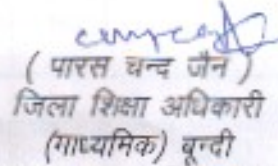 ( पारस चन्द जैन )
जिला शिक्षा अधिकारी
(माध्यमिक) बून्दी